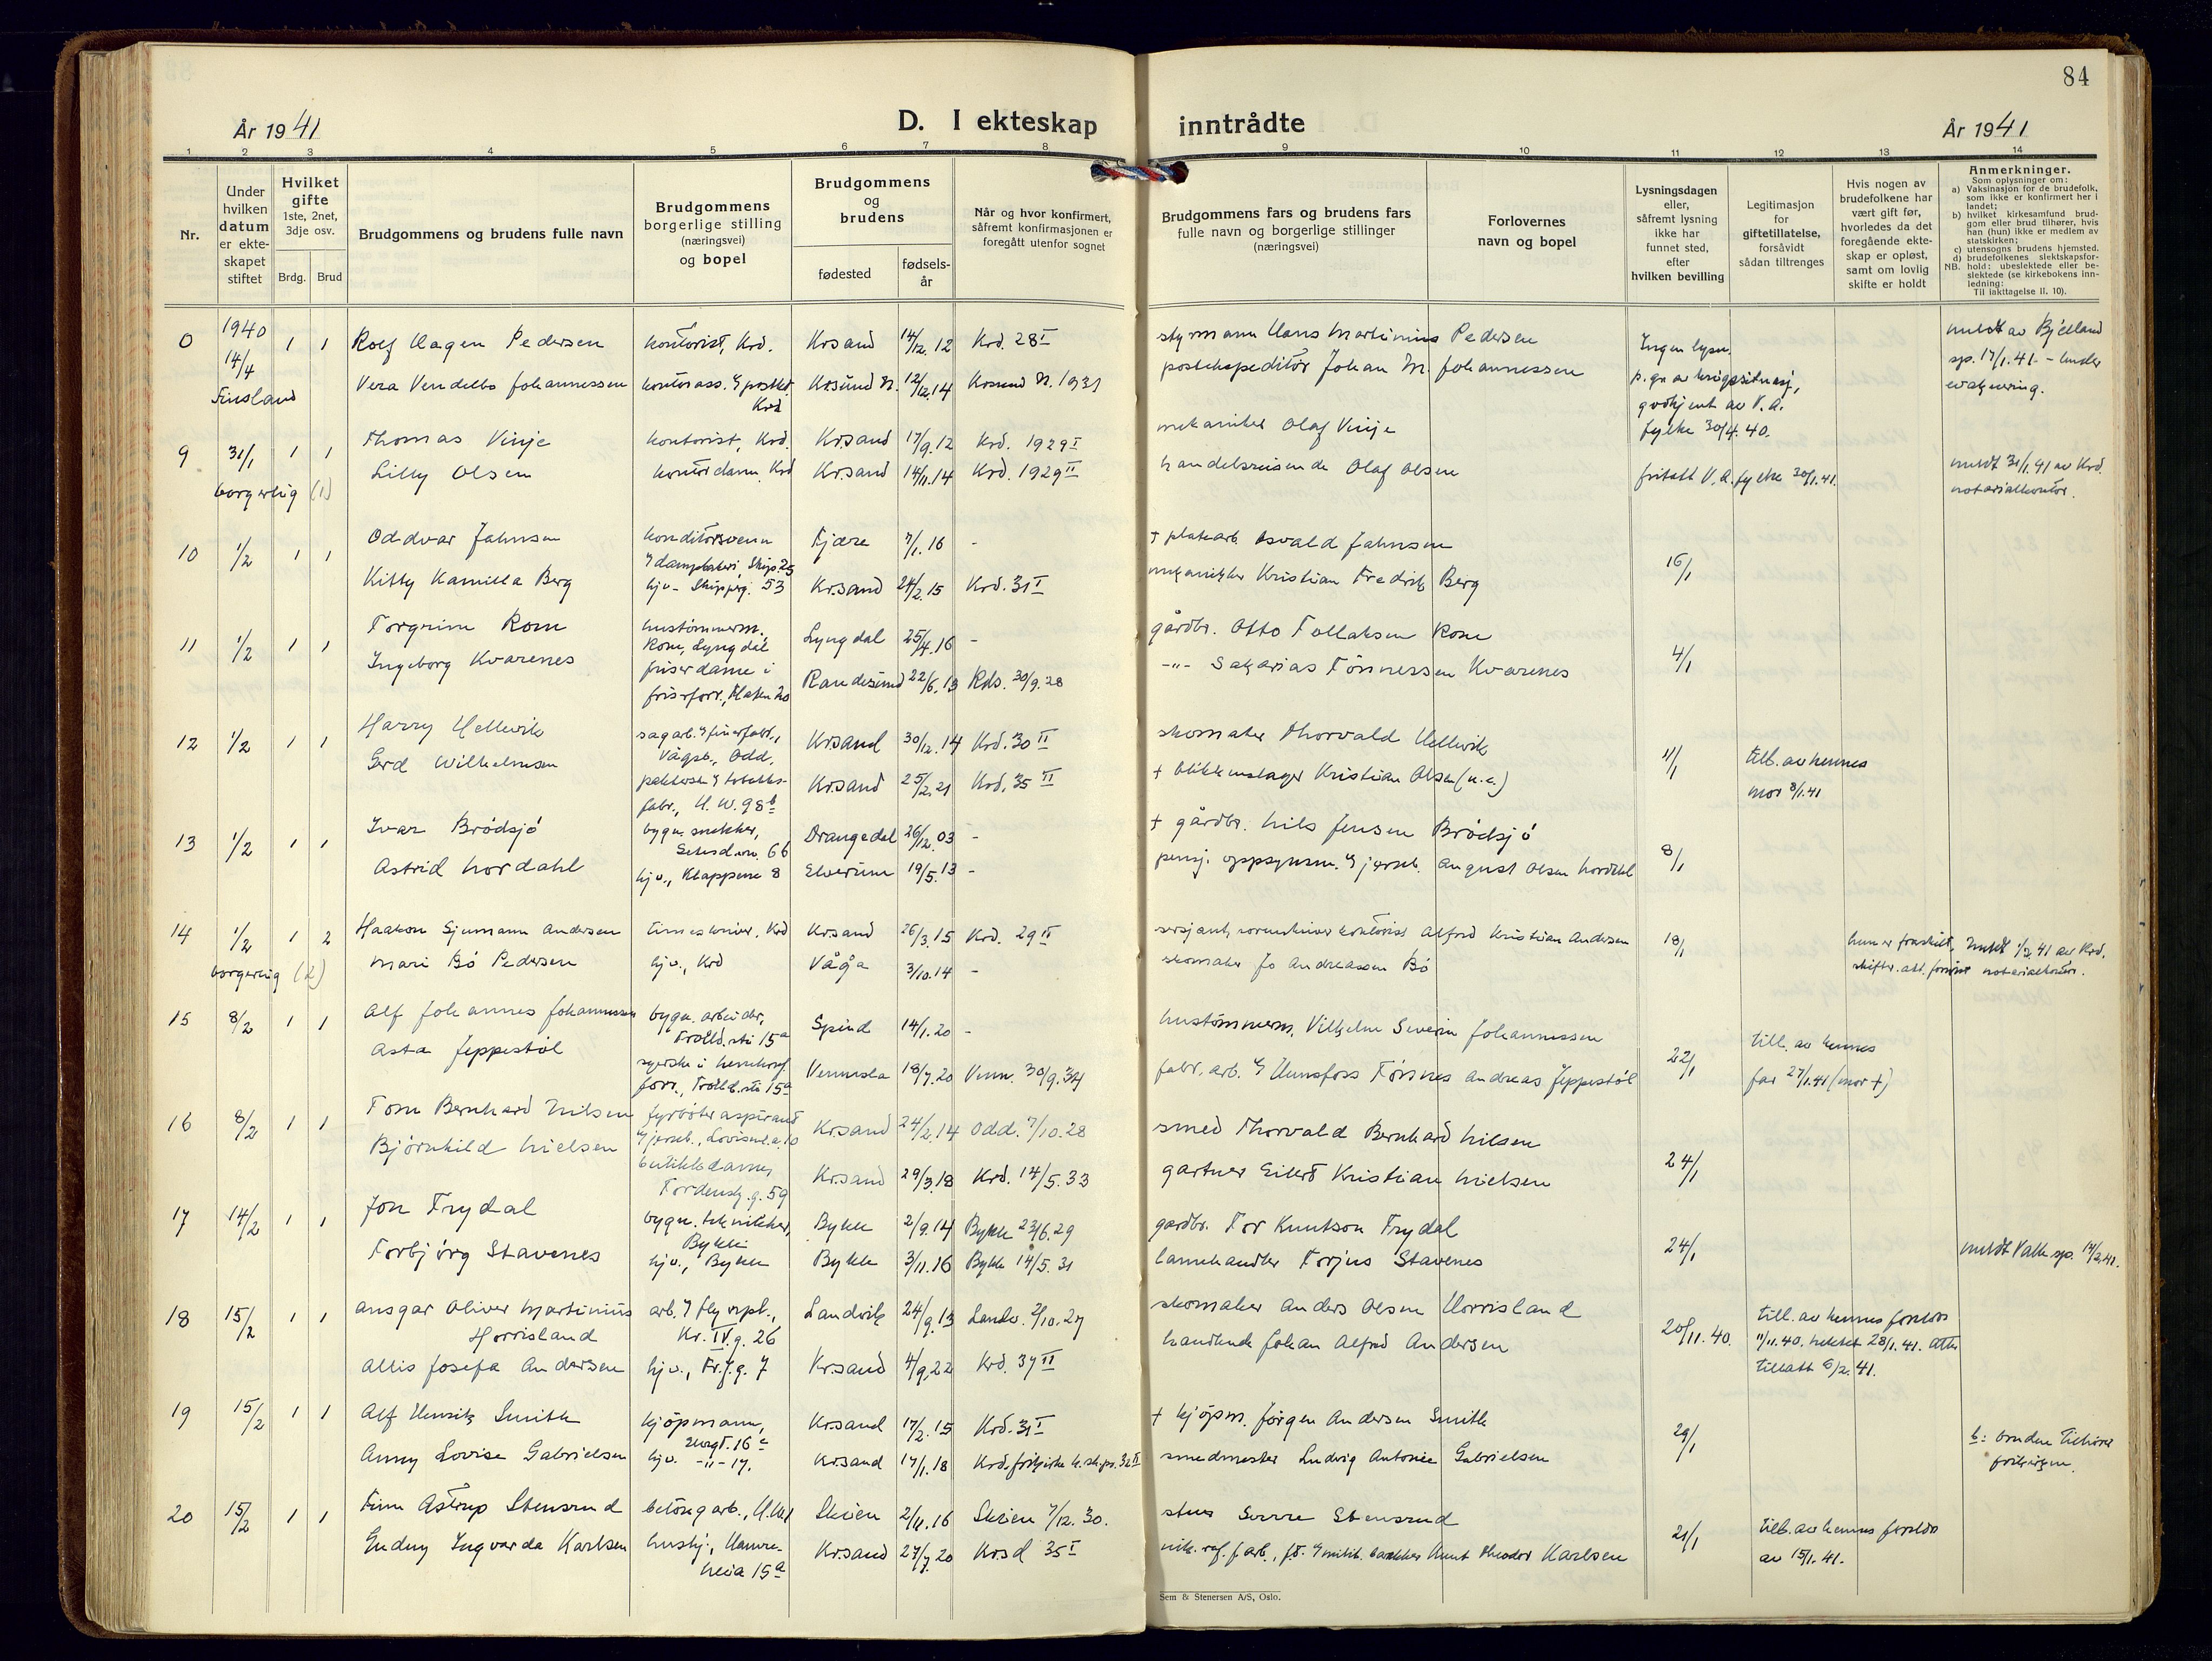 84
År 1941
D. I ekteskap inntrådte
År 1941
1 2 3 4 5 6 7 8 9 10 11 12 13 14
Nr.
Under hvilken datum er ekteskapet stiftet
Hvilket gifte 1ste, 2net, 3dje osv.
Brdg. Brud
Brudgommens og brudens fulle navn
Brudgommens borgerlige stilling (næringsvei) og bopel
Brudgommens og brudens
fødested
fødsels-år
Når og hvor konfirmert, såfremt konfirmasjonen er foregått utenfor sognet
Brudgommens fars og brudens fars fulle navn og borgerlige stillinger (næringsvei)
Forlovernes navn og bopel
Lysningsdagen eller, såfremt lysning ikke har funnet sted, efter hvilken bevilling
Legitimasjon for giftetillatelse, forsåvidt sådan tiltrenges
Hvis nogen av brudefolkene har vært gift før, hvorledes da det foregående ekteskap er opløst, samt om lovlig skifte er holdt
Anmerkninger.
Som oplysninger om:
a) Vaksinasjon for de brudefolk, som ikke er konfirmert her i landet;
b) hvilket kirkesamfund brudgom eller brud tilhører, hvis han (hun) ikke er medlem av statskirken;
c) utensogns brudens hjemsted.
d) brudefolkenes slektskapsforhold: ubeslektede eller beslektede (se kirkebokens innledning:
NB. Til iakttagelse II. 10).
0 1940 14/4 Finsland 1 1 Rolf Hagen Pedersen kontorist, Krd. Krsand 14/12.12 Krd. 28 I styrmann Hans Martinius Pedersen
Vera Vendelbo Johannessen Krd Krsund N. 12/12.14 Krsund N. 1931 postekspeditør Johan M. Johannessen
Ingen lysn. p.gr. av krigssituasj, godkjent av V.A. fylke 30/4.40.
meldt av Bjelland sp. 17/1.41. - under evakuering.
9 31/1 borgerlig (1) 1 1 Thomas Vinje kontorist, Krd. Krsand 17/9.12 Krd. 1929 I mekaniker Olaf Vinje
Lilly Olsen kontordame, Krd Krsand 14/11.14 Krd. 1929 II handelsreisende Olaf Olsen fritatt V.A. fylke 30/1.41. meldt 31/1.41 av Krd. notarialkontor.
10 1/2 1 1 Oddvar Jahnsen konditorsvenn Fjære 7/1.16 - + platearb. Osvald Jahnsen 16/1
Kitty Kamilla Berg hjv. Skipperg. 53 Krsand 24/2.15 Krd. 31 I mekaniker Kristian Fredrik Berg
11 1/2 1 1 Torgrim Rom hustømmerm. Rom, Lyngdal Lyngdal 25/4.16 - gårdbr. Otto Tollaksen Rom 4/1
Ingeborg Kvarenes friserdame i Randesund 22/6.13 Rds. 30/9.28 -"- Sakarias Tønnessen Kvarenes
12 1/2 1 1 Harry Hellevik Vågsb., Odd. Krsand 30/12.14 Krd. 30 II skomaker Thorvald Hellevik 11/1 till. av hennes mor 8/1.41
Gerd Wilhelmsen fabr., H.W. 98 b Krsand 25/2.21 Krd. 35 II + blikkenslager Kristian Olsen (u.e.)
13 1/2 1 1 Ivar Brødsjø bygn. snekker, Setesd.vn. 66 Drangedal 26/12.03 - + gårdbr. Nils Jensen Brødsjø 8/1
Astrid Nordahl hjv., Klappane 8 Elverum 19/5.13 - pensj. oppsynsm. August Olsen Nordahl
14 1/2 borgerlig (2) 1 2 Haakon Sjumann Andersen timeskriver, Krd Krsand 26/3.15 Krd. 29 II Alfred Kristian Andersen 18/1
Mari Bø Pedersen hjv., Krd Vågå 3/10.14 - skomaker Jo Andreassen Bø hun er fraskilt, meldt 1/2.41 av Krd. notarialkontor.
15 8/2 1 1 Alf Johannes Johannessen bygn. arbeider, Trolld.sti 15 a Spind 14/1.20 - hustømmerm. Vilhelm Severin Johannessen 22/1
Asta Jeppestøl syerske i Trolld.sti 15 a Vennesla 18/7.20 Venn. 30/9.34 fabr. arb. Hunsfoss Tønnes Andreas Jeppestøl till. av hennes far 27/1.41 (mor +)
16 8/2 1 1 Tom Bernhard Nilsen fyrbøteraspirant Krsand 24/2.14 Odd. 7/10.28 smed Thorvald Bernhard Nilsen 24/1
Bjørnhild Nielsen butikkdame, Tordenskj.g. 59 Krsand 29/3.18 Krd. 14/5.33 gartner Eilert Kristian Nielsen
17 14/2 1 1 Jon Trydal bygn. tekniker, Bykle Bykle 2/9.14 Bykle 23/6.29 gårdbr. Tor Knutson Trydal 24/1
Torbjørg Stavenes hjv., Bykle Bykle 3/11.16 Bykle 14/5.31 lannhandler Torjus Stavenes meldt Valle sp. 14/2.41.
18 15/2 1 1 Ansgar Oliver Martinius Horrisland Kr. IV.g. 26 Landvik 24/9.13 Landv. 2/10.27 skomaker Anders Olsen Horrisland 20/11.40.
Allis Josefa Andersen hjv., Fr.J.g. 7 Krsand 4/9.22 Krd. 37 II handlende Johan Alfred Andersen till. av hennes foreldre 11/11.40. 28/1.41. tillatt 6/2.41.
19 15/2 1 1 Alf Henrik Smith kjøpmann, Krsand 17/2.15 Krd. 31 I + kjøpm. Jørgen Andersen Smith 29/1
Anny Lovise Gabrielsen hjv. -"- 17. Krsand 17/1.18 Krd. frikirke smedmester Ludvig Antonie Gabrielsen b: bruden tilhører frikirken.
20 15/2 1 1 Finn Astrup Stensrud betongarb., Skien 2/11.16 Skien 7/12.30. Sverre Stensrud 21/1
Gudny Ingvarda Karlsen hushj., Hamreheia 15 a Krsand 27/7.20 Krsd 35 I Knut Theodor Karlsen till. av hennes foreldre av 15/1.41.
Sem & Stenersen A/S, Oslo.